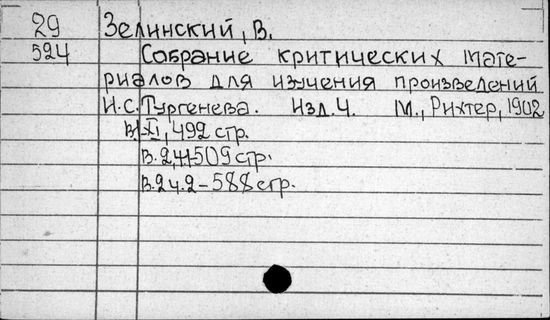 29 Зелинский, В.
524 Собрание критических мате-
риалов для изучения произведений
И.С. Тургенева. Изд. 4. М., Рихтер, 1902
В.1-XI, 492 стр.
В.2,ч1-509 стр.
В.2 ч.2-588 стр.